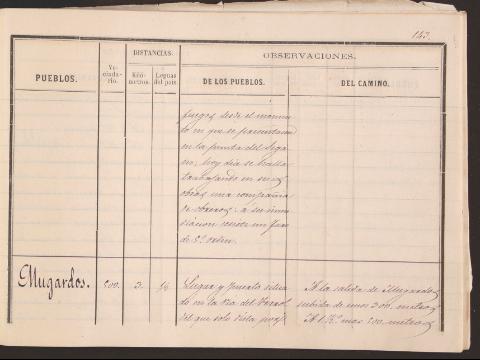 143.
PUEBLOS.
Vecindario.
DISTANCIAS.
Kilómetros.
Leguas del país
OBSERVACIONES.
DE LOS PUEBLOS.
DEL CAMINO.
fuegos desde el momen
to en que se presentasen
en la punta del Sega
no; hoy dia se halla
trabajando en
obras una compañia
de obreros: a su inme
diacion existe un faro
de 5.º orden.
Mugardos.
200.
3.
Lugar y puerto situa
do en la ria del Ferrol
del que solo dista
A la salida de Mugardos
subida de unos 300 metros
A 1 K.º mas 200 metros